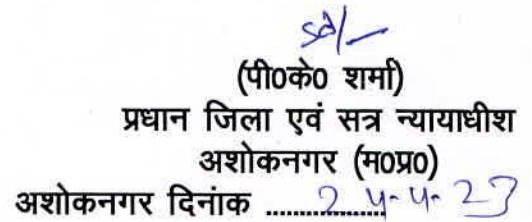 sd/-
(पी0के0 शर्मा)
प्रधान जिला एवं सत्र न्यायाधीश
अशोकनगर (म0प्र0)
अशोकनगर दिनांक ............... 24-4-23